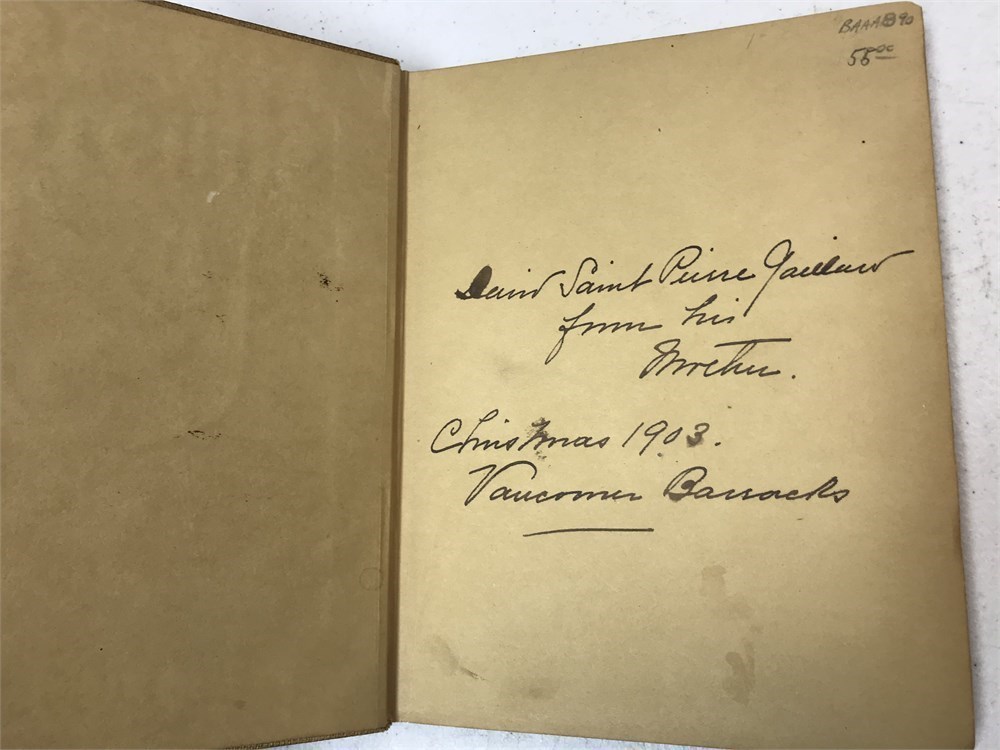 BAAAB90
55.00
David Saint Pierre Gaillard
from his
Mother.
Christmas 1903.
Vancouver Barracks